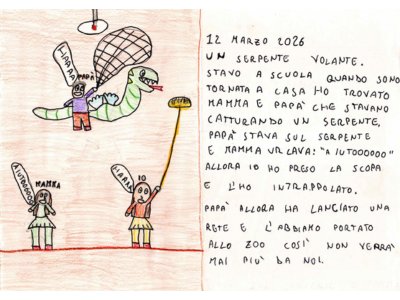 HAAAA
PAPÀ
AIUTOOOOO
MAMMA
HAAAA
IO
12 MARZO 2026
UN SERPENTE VOLANTE.
STAVO A SCUOLA QUANDO SONO
TORNATA A CASA HO TROVATO
MAMMA E PAPÀ CHE STAVANO
CATTURANDO UN SERPENTE.
PAPÀ STAVA SUL SERPENTE
E MAMMA URLAVA: "AIUTOOOOOO"
ALLORA IO HO PRESO LA SCOPA
E L'HO INTRAPPOLATO.
PAPÀ ALLORA HA LANCIATO UNA
RETE E L'ABBIAMO PORTATO
ALLO ZOO COSÌ NON VERRÀ
MAI PIÙ DA NOI.